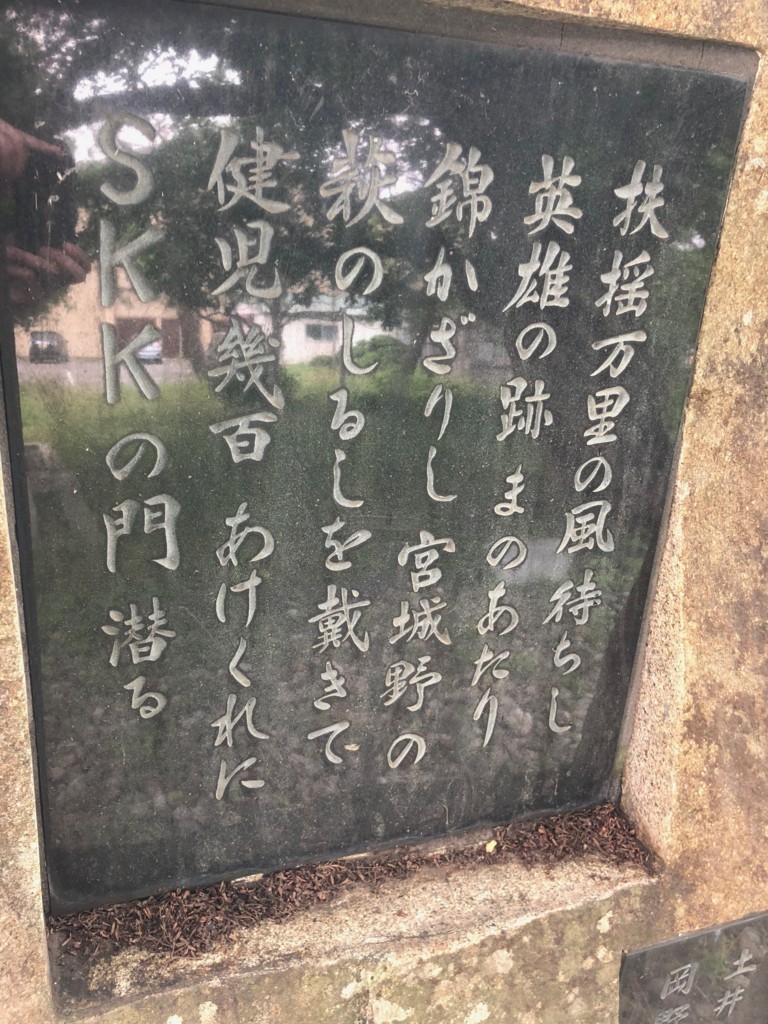 扶揺万里の風待ちし
英雄の跡 まのあたり
錦かざりし 宮城野の
萩のしるしを戴きて
健児幾百 あけくれに
SKKの門 潜る
土井
岡野